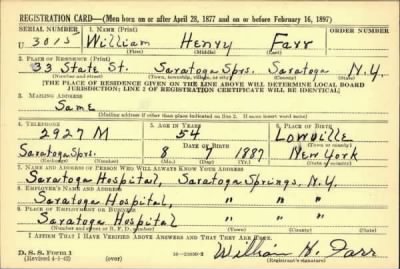 REGISTRATION CARD—(Men born on or after April 28, 1877 and on or before February 16, 1897)
SERIAL NUMBER 1. NAME (Print) ORDER NUMBER
U 3015 William Henry Farr
(First) (Middle) (Last)
2. PLACE OF RESIDENCE (Print)
33 State St. Saratoga Sprs. Saratoga N.Y.
(Number and street) (Town, township, village, or city) (County) (State)
[THE PLACE OF RESIDENCE GIVEN ON THE LINE ABOVE WILL DETERMINE LOCAL BOARD
JURISDICTION; LINE 2 OF REGISTRATION CERTIFICATE WILL BE IDENTICAL]
3. MAILING ADDRESS
Same
[Mailing address if other than place indicated on line 2. If same insert word same]
4. TELEPHONE 5. AGE IN YEARS 6. PLACE OF BIRTH
2927 M 54 Lowville
DATE OF BIRTH (Town or county)
Saratoga Sprs. 8 9 1887 New York
(Exchange) (Number) (Mo.) (Day) (Yr.) (State or country)
7. NAME AND ADDRESS OF PERSON WHO WILL ALWAYS KNOW YOUR ADDRESS
Saratoga Hospital, Saratoga Springs, N.Y.
8. EMPLOYER'S NAME AND ADDRESS
Saratoga Hospital, " " "
9. PLACE OF EMPLOYMENT OR BUSINESS
Saratoga Hospital " " "
(Number and street or R. F. D. number) (Town) (County) (State)
I AFFIRM THAT I HAVE VERIFIED ABOVE ANSWERS AND THAT THEY ARE TRUE.
D. S. S. Form 1 William H. Farr
(Revised 4-1-42) (over)